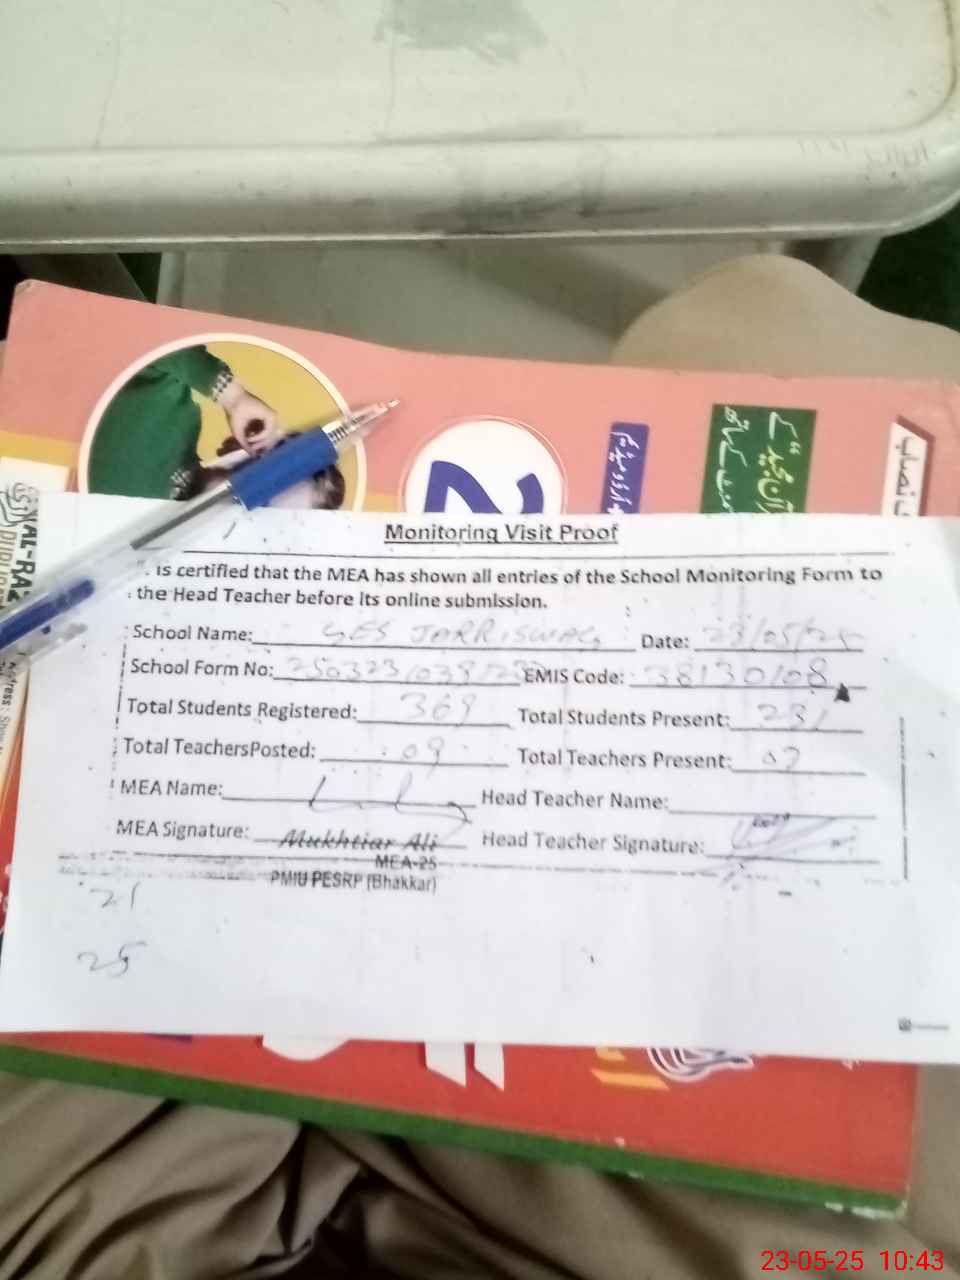 2
اردو میڈیم
قرآن مجید کے
نصاب
AL-RAZ
Address: Shop
Monitoring Visit Proof
is certified that the MEA has shown all entries of the School Monitoring Form to
the Head Teacher before its online submission.
School Name: GES JARRISWAG Date: 23/05/25
School Form No: EMIS Code: 38130108
Total Students Registered: 369 Total Students Present: 231
Total TeachersPosted: 09 Total Teachers Present: 07
MEA Name: Head Teacher Name:
MEA Signature: Mukhtiar Ali Head Teacher Signature:
MEA-25
PMIU PESRP (Bhakkar)
21
25
23-05-25 10:43